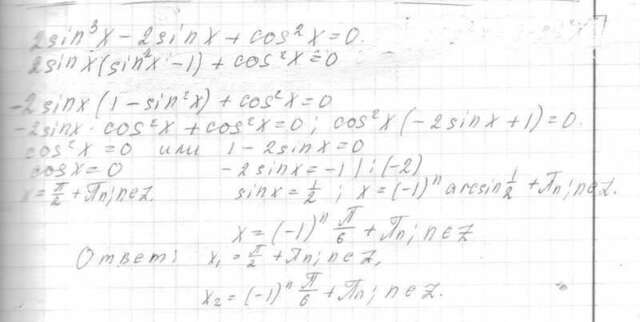 2sin³x - 2sinx + cos²x = 0.
2sinx(sin²x - 1) + cos²x = 0
-2sinx(1 - sin²x) + cos²x = 0
-2sinx · cos²x + cos²x = 0 ; cos²x(-2sinx + 1) = 0.
cos²x = 0 или 1 - 2sinx = 0
cosx = 0 -2sinx = -1 | : (-2)
x = π/2 + πn; n∈Z. sinx = 1/2 ; x = (-1)ⁿ arcsin 1/2 + πn; n∈Z.
x = (-1)ⁿ π/6 + πn; n∈Z
Ответ: x₁ = π/2 + πn; n∈Z,
x₂ = (-1)ⁿ π/6 + πn; n∈Z.